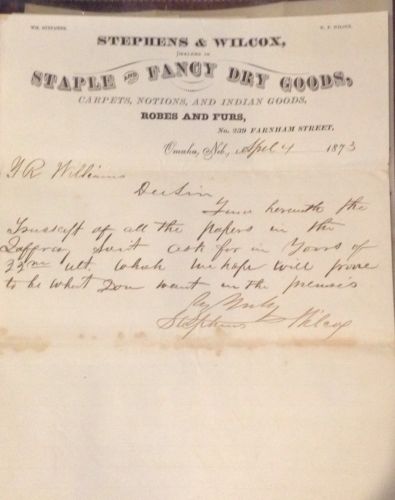 WM. STEPHENS. W. P. WILCOX.
STEPHENS & WILCOX,
DEALERS IN
STAPLE AND FANCY DRY GOODS,
CARPETS, NOTIONS, AND INDIAN GOODS,
ROBES AND FURS,
No. 239 FARNHAM STREET,
Omaha, Neb., Apl 4 1873
R Williams
Dear Sir
herewith the
of all the papers in the
Suit ask for in Yours of
ult. which we hope will prove
to be what You want in the premises
Truly
Stephens Wilcox